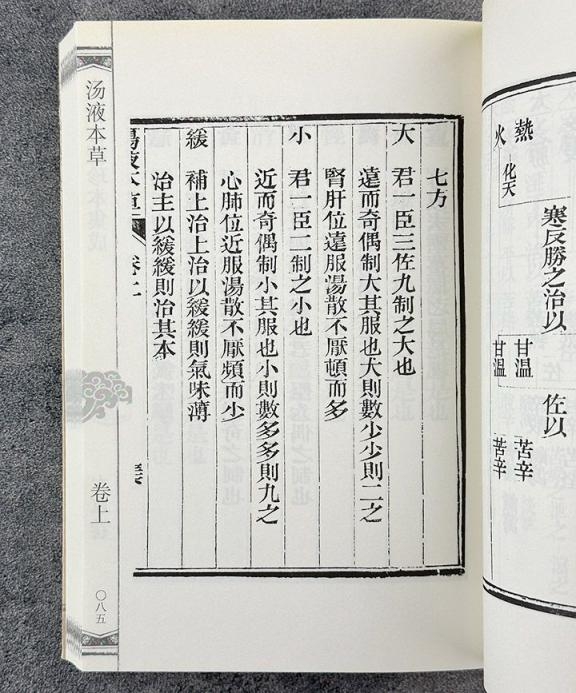 熱
火
化天
寒反勝之治以
甘温
甘温
佐以
苦辛
苦辛
七方
大 君一臣三佐九制之大也
遠而奇偶制大其服也大則數少少則二之
腎肝位遠服湯散不厭頓而多
小 君一臣二制之小也
近而奇偶制小其服也小則數多多則九之
心肺位近服湯散不厭頻而少
緩 補上治上治以緩緩則氣味薄
治主以緩緩則治其本
湯液本草 卷二
汤液本草
卷上
〇八五